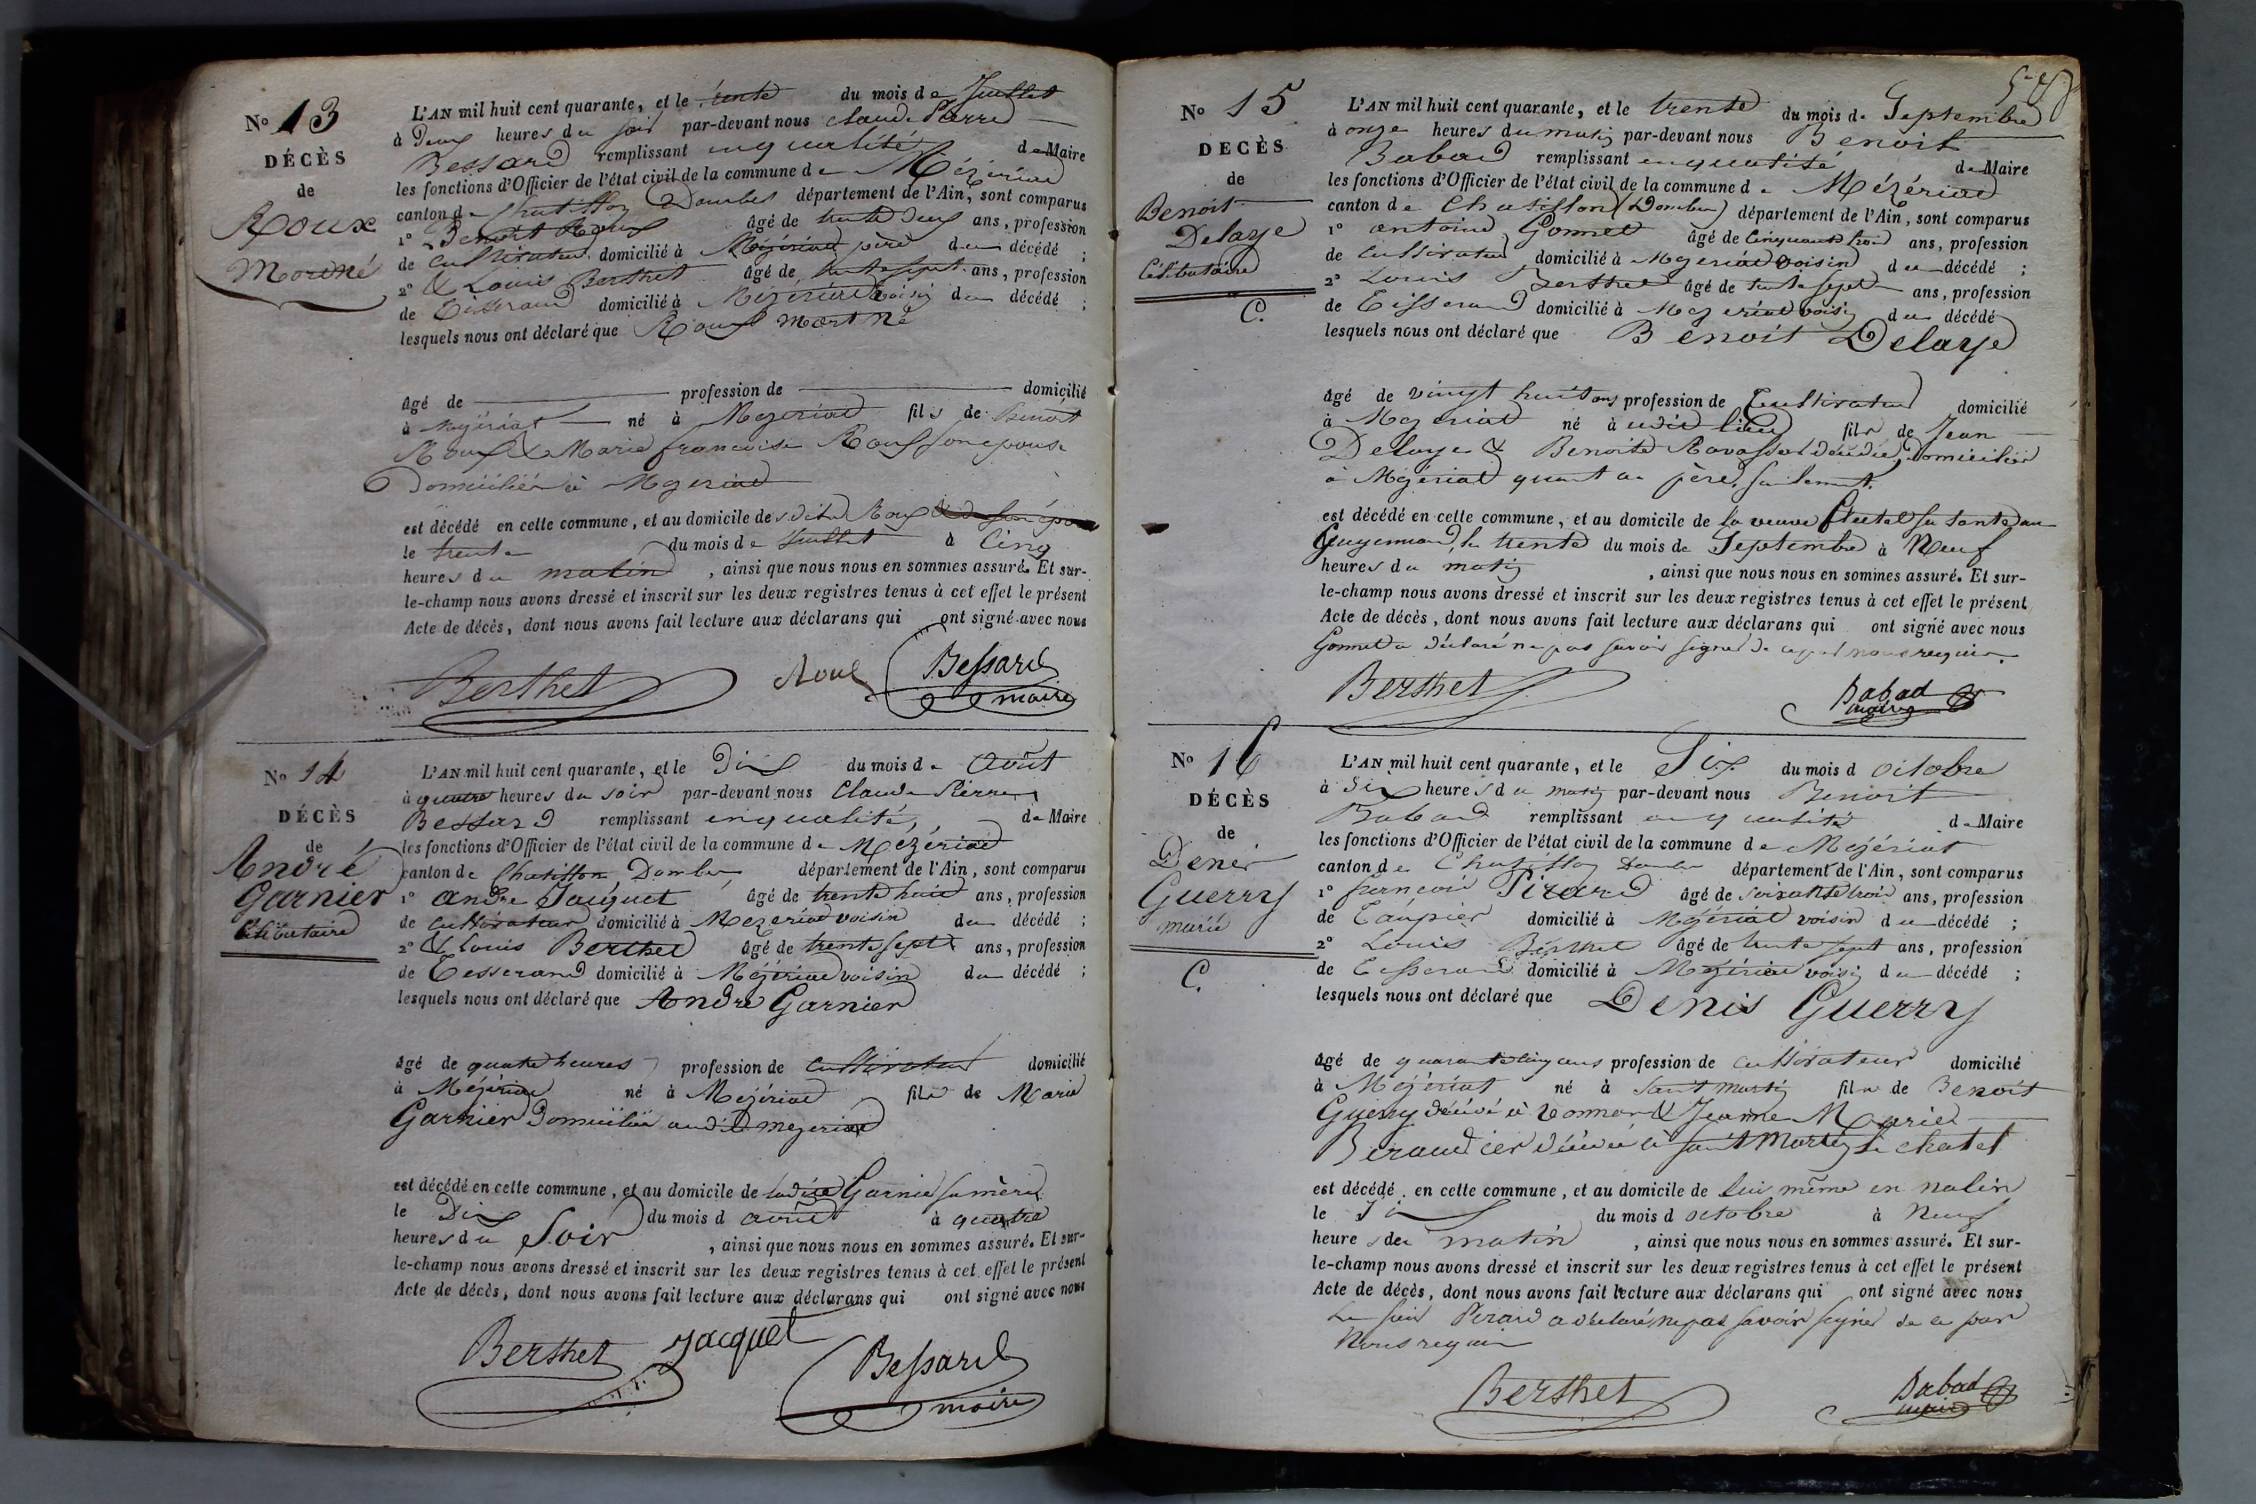 No 13
DÉCÈS
de
Roux
Mort né
L'AN mil huit cent quarante, et le trente du mois de Juillet
à Deux heures du soir par-devant nous Claude Pierre
Bessard remplissant en qualité de Maire
les fonctions d'Officier de l'état civil de la commune de Mézériat
canton de Chatillon Dombes département de l'Ain, sont comparus
1° Benoit Roux âgé de trente deux ans, profession
de cultivateur domicilié à Mézériat père du décédé ;
2° & Louis Berthet âgé de trente sept ans, profession
de Tisserand domicilié à Mézériat voisin du décédé ;
lesquels nous ont déclaré que Roux mort Né
âgé de profession de domicilié
à Mézériat né à Mezeriat fils de Benoit
Roux & Marie francoise Roux son epouse
Domiciliés à Mezeriat
est décédé en cette commune, et au domicile des dits Roux
le trente du mois de Juillet à Cinq
heures du matin, ainsi que nous nous en sommes assuré. Et sur-
le-champ nous avons dressé et inscrit sur les deux registres tenus à cet effet le présent
Acte de décès, dont nous avons fait lecture aux déclarans qui ont signé avec nous
Berthet Roux Bessard
maire
No 14
DÉCÈS
de
André
Garnier
Célibataire
L'AN mil huit cent quarante, et le Dix du mois d'Août
à quatre heures du soir par-devant nous Claude Pierre
Bessard remplissant en qualité, de Maire
les fonctions d'Officier de l'état civil de la commune de Mézériat
canton de Chatillon Dombes département de l'Ain, sont comparus
1° andre Jacquet âgé de trente huit ans, profession
de cultivateur domicilié à Mezeriat voisin du décédé ;
2° & Louis Berthet âgé de trente sept ans, profession
de Tesserand domicilié à Mézériat voisin du décédé ;
lesquels nous ont déclaré que André Garnier
âgé de quatre heures profession de cultivateur domicilié
à Mézériat né à Mézériat fils de Marie
Garnier Domiciliée audit mezeriat
est décédé en cette commune, et au domicile de ladite Garnier sa mère
le Dix du mois d août à quatre
heures du Soir, ainsi que nous nous en sommes assuré. Et sur-
le-champ nous avons dressé et inscrit sur les deux registres tenus à cet effet le présent
Acte de décès, dont nous avons fait lecture aux déclarans qui ont signé avec nous
Berthet Jacquet Bessard
maire
No 15
DÉCÈS
de
Benoit
Delaye
Célibataire
C.
L'AN mil huit cent quarante, et le trente du mois de Septembre
à onze heures du matin par-devant nous Benoit
Babad remplissant en qualité de Maire
les fonctions d'Officier de l'état civil de la commune de Mézériat
canton de Chatillon (Dombes) département de l'Ain, sont comparus
1° antoine Gonnet âgé de Cinquante trois ans, profession
de Cultivateur domicilié à Mezeriat voisin du décédé ;
2° Louis Berthet âgé de trente sept ans, profession
de Tisserand domicilié à Mezeriat voisin du décédé
lesquels nous ont déclaré que Benoit Delaye
âgé de vingt huit ans profession de Cultivateur domicilié
à Mezeriat né à udit lieu fils de Jean
Delaye & Benoite Ravassot décédée, Domiciliés
à Mézériat quant au père, seulement.
est décédé en cette commune, et au domicile de la veuve sa tante au
le trente du mois de Septembre à Neuf
heures du matin, ainsi que nous nous en sommes assuré. Et sur-
le-champ nous avons dressé et inscrit sur les deux registres tenus à cet effet le présent
Acte de décès, dont nous avons fait lecture aux déclarans qui ont signé avec nous
Gonnet a déclaré ne pas savoir signer de ce par nous requis.
Berthet Babad
maire
No 16
DÉCÈS
de
Denis
Guerry
marié
C.
L'AN mil huit cent quarante, et le Six du mois d octobre
à Dix heures du matin par-devant nous Benoit
Babad remplissant en qualité de Maire
les fonctions d'Officier de l'état civil de la commune de Mézériat
canton de Chatillon Dombes département de l'Ain, sont comparus
1° francois Pirard âgé de soixante trois ans, profession
de Taupier domicilié à Mézériat voisin du décédé ;
2° Louis Berthet âgé de trente sept ans, profession
de Tisserand domicilié à Mézériat voisin du décédé ;
lesquels nous ont déclaré que Denis Guerry
âgé de quarante cinq ans profession de cultivateur domicilié
à Mézériat né à saint Martin fils de Benoit
Guerry décédé à Vonnas & Jeanne Marie
Beraudier décédée à saint Martin le chatel
est décédé en cette commune, et au domicile de lui même
le Six du mois d octobre à Neuf
heures du matin, ainsi que nous nous en sommes assuré. Et sur-
le-champ nous avons dressé et inscrit sur les deux registres tenus à cet effet le présent
Acte de décès, dont nous avons fait lecture aux déclarans qui ont signé avec nous
Le sieur Pirard a déclaré ne pas savoir signer de ce par
Nous requis
Berthet Babad
maire